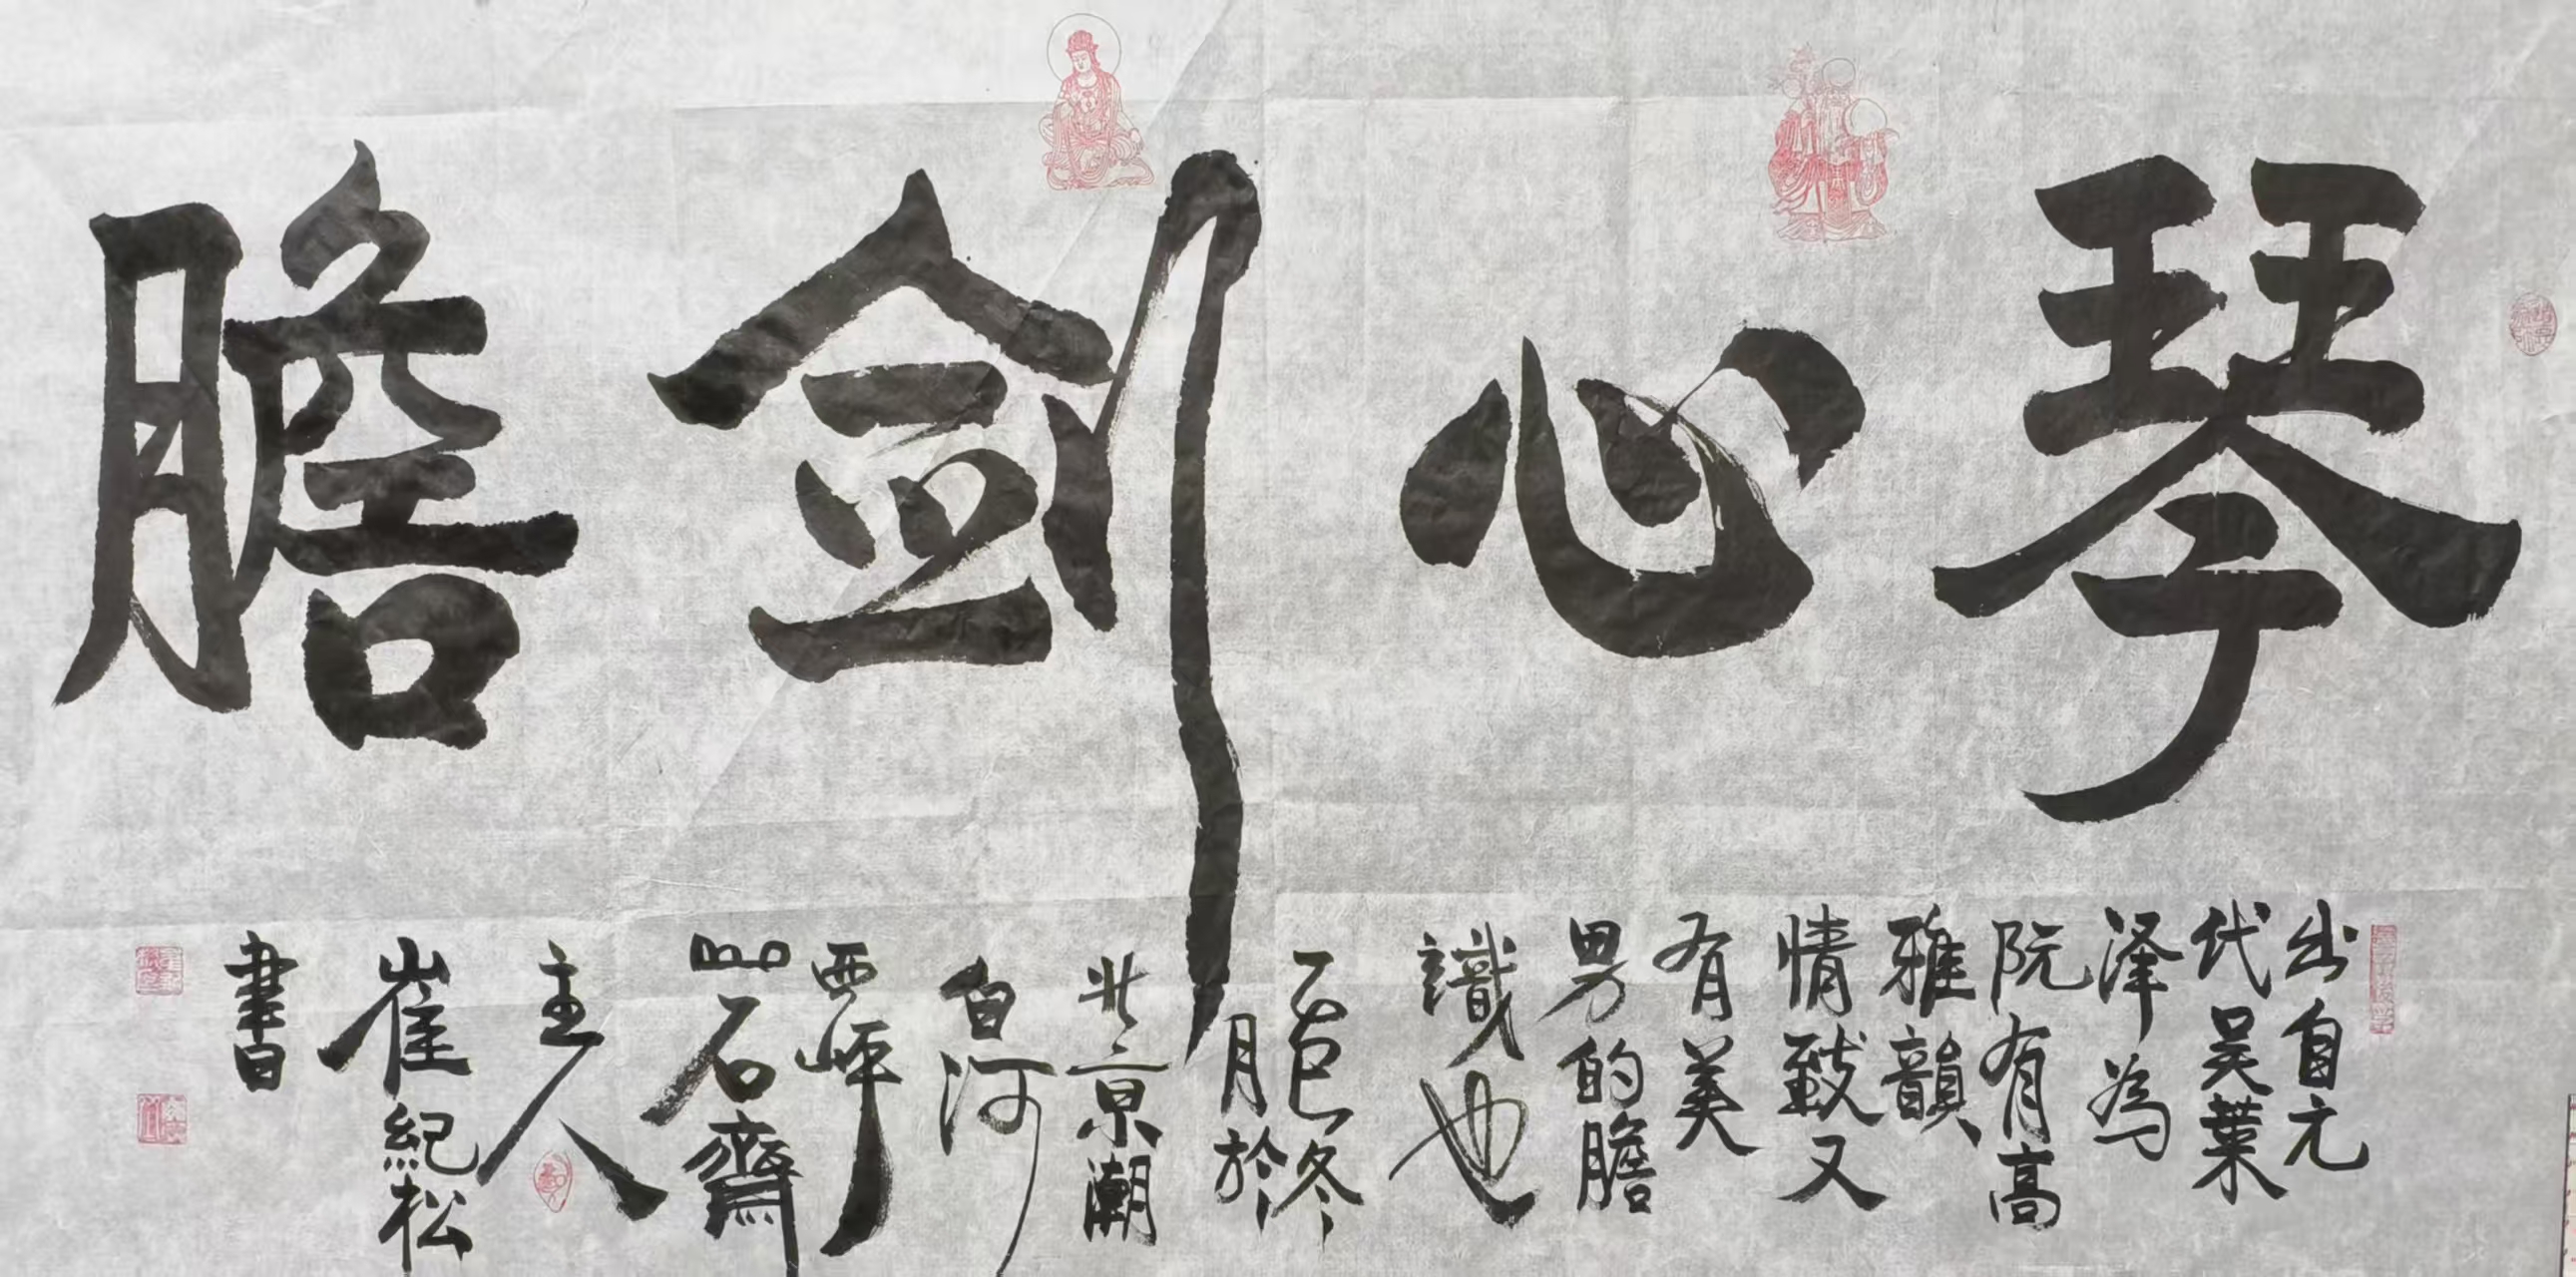 琴心剑膽
出自元
代吴葉
泽為
阮有高
雅韻
情致又
有美
男的膽
識也
乙巳冬
月於
北京潮
白河
西岸
品石齋
主人
崔紀松
書